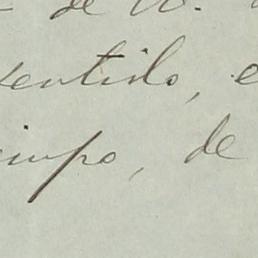 de
sentido, e
iempo, de